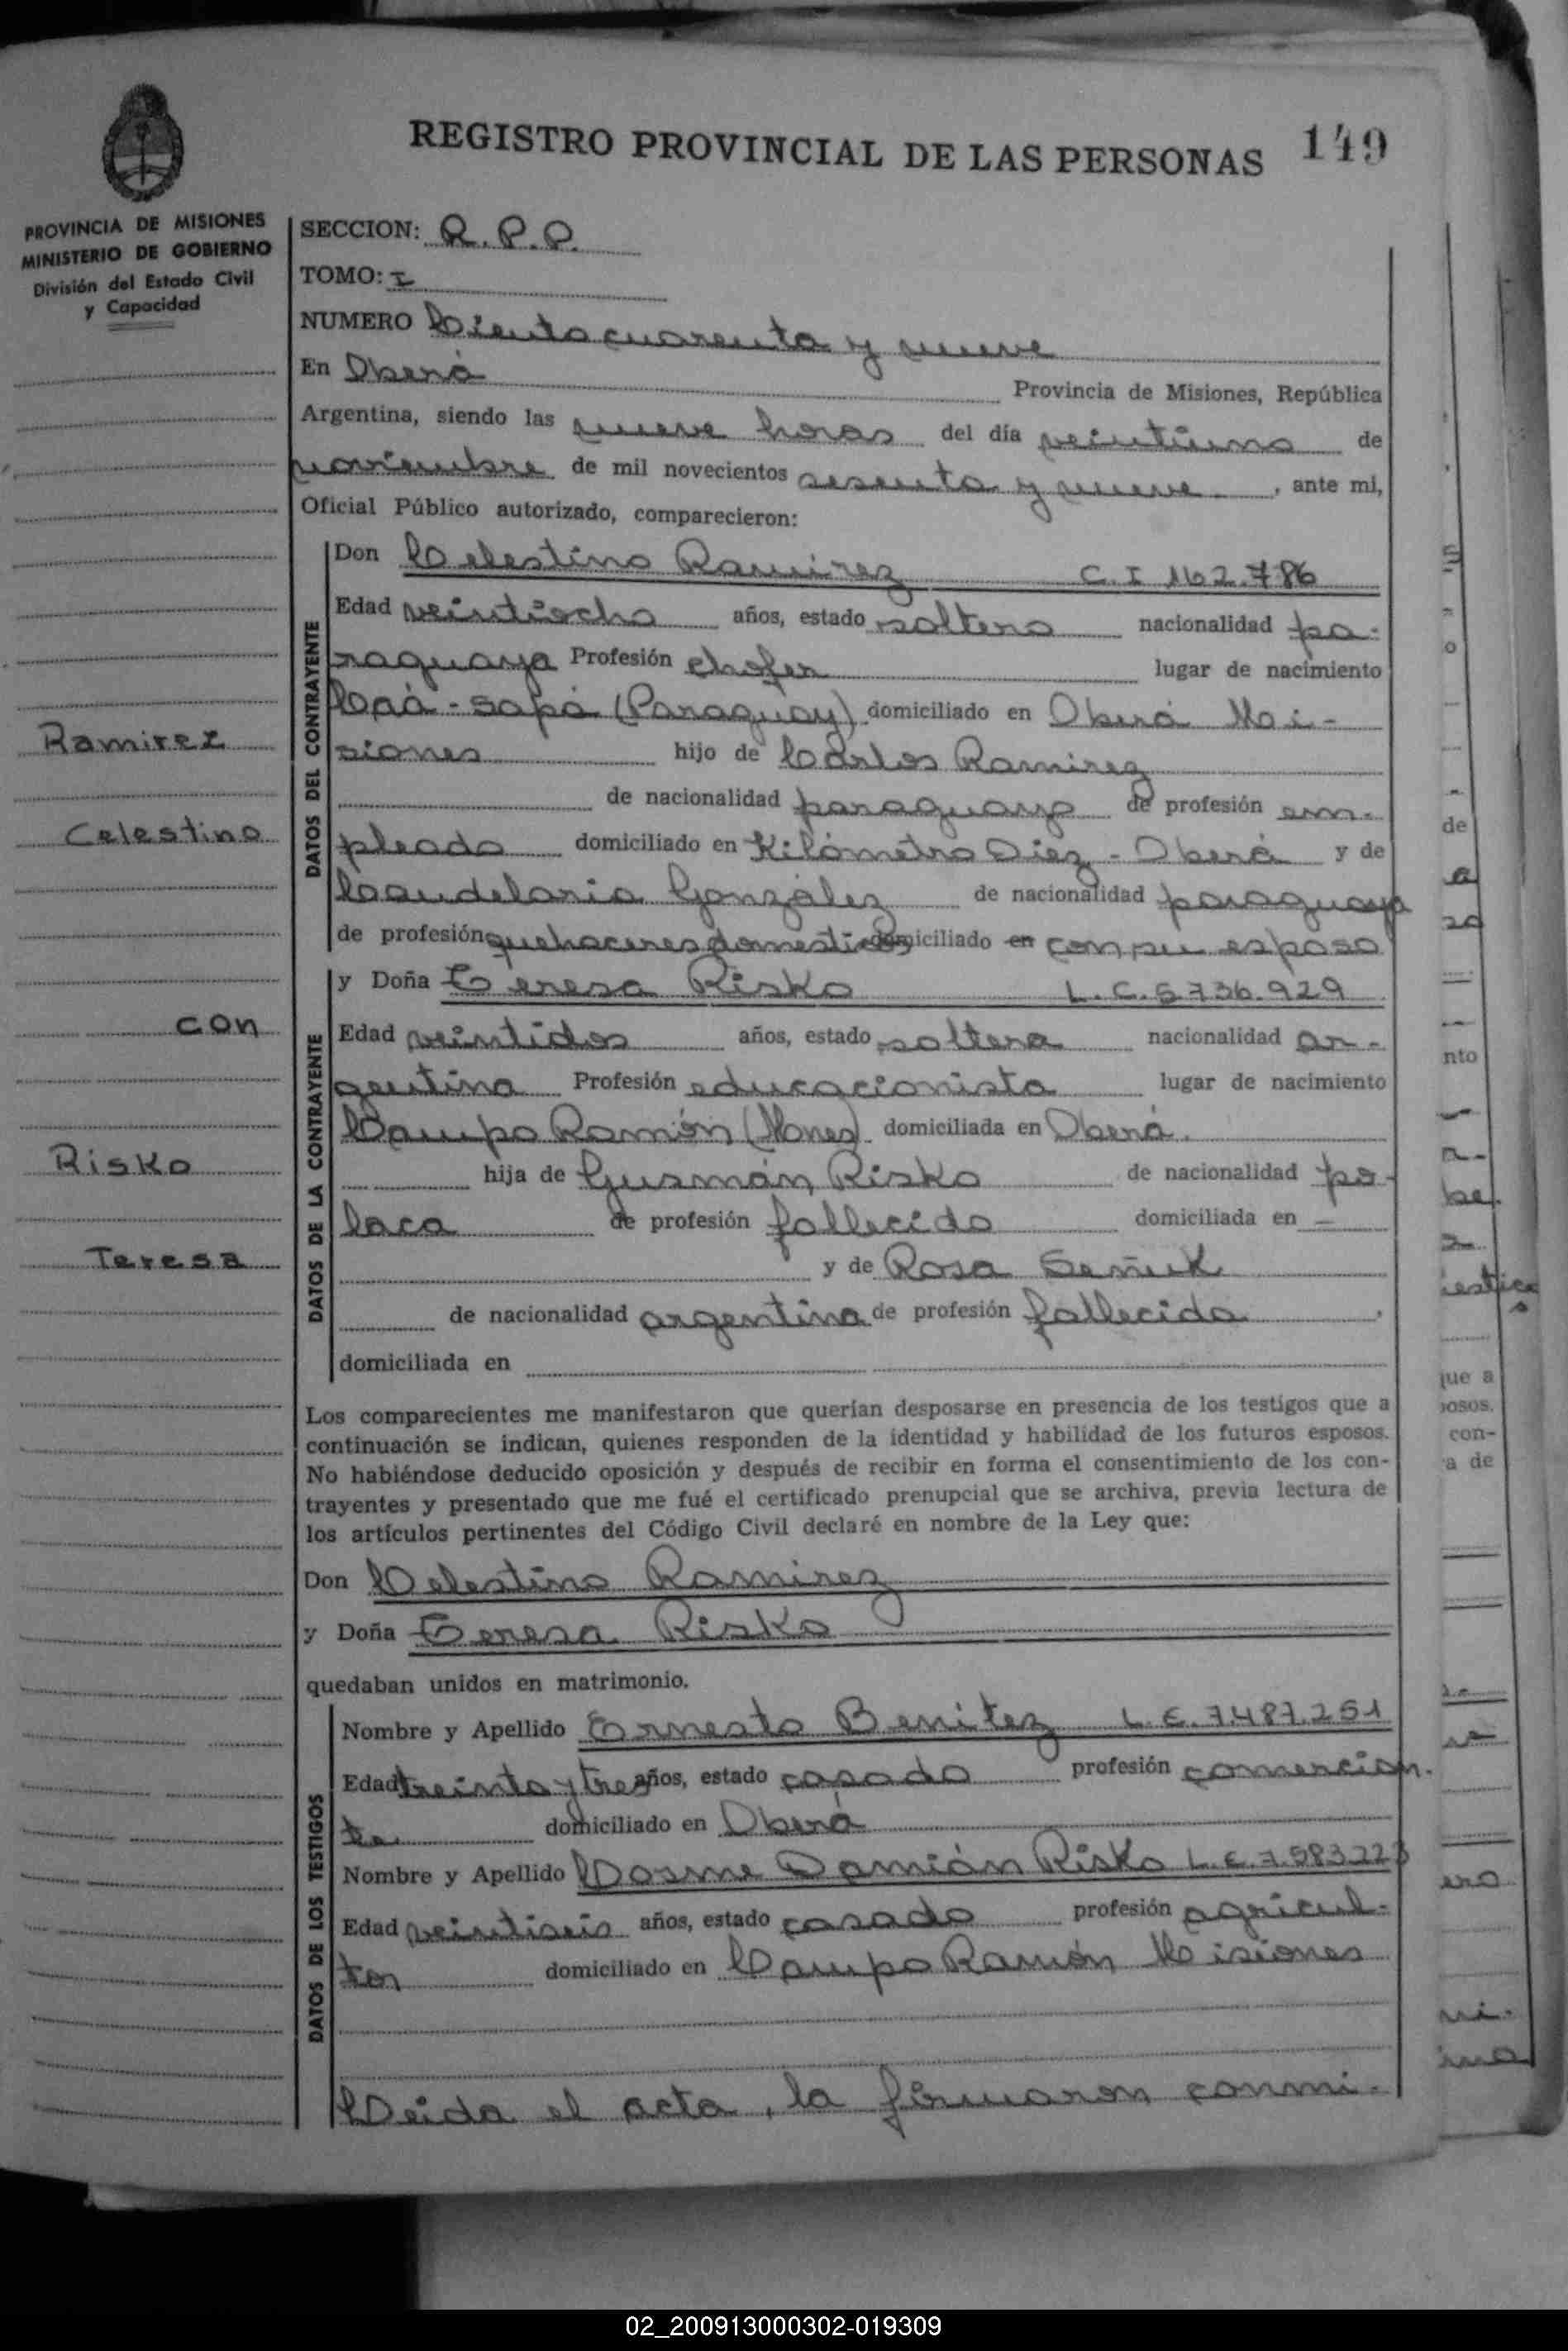 REGISTRO PROVINCIAL DE LAS PERSONAS 149
PROVINCIA DE MISIONES
MINISTERIO DE GOBIERNO
División del Estado Civil
y Capacidad
SECCION: R.P.P.
TOMO: I
NUMERO Ciento cuarenta y nueve
En Oberá Provincia de Misiones, República
Argentina, siendo las nueve horas del día veintiuno de
noviembre de mil novecientos sesenta y nueve, ante mi,
Oficial Público autorizado, comparecieron:
DATOS DEL CONTRAYENTE
Don Celestino Ramirez C.I 162.786
Edad veintiocho años, estado soltero nacionalidad pa-
raguaya Profesión chofer lugar de nacimiento
Caá-Sapá (Paraguay) domiciliado en Oberá Mi-
siones hijo de Carlos Ramirez
de nacionalidad paraguayo de profesión em-
pleado domiciliado en Kilómetro Diez - Oberá y de
Candelaria González de nacionalidad paraguaya
de profesión quehaceres domesticos domiciliado en con su esposo
Ramirez
Celestino
con
Risko
Teresa
DATOS DE LA CONTRAYENTE
y Doña Teresa Risko L.C. 5.736.929
Edad veintidos años, estado soltera nacionalidad ar-
gentina Profesión educacionista lugar de nacimiento
Campo Ramón (Mnes) domiciliada en Oberá.
hija de Gusmán Risko de nacionalidad po-
laca de profesión fallecido domiciliada en —
y de Rosa Señuk
de nacionalidad argentina de profesión fallecida
domiciliada en
Los comparecientes me manifestaron que querían desposarse en presencia de los testigos que a
continuación se indican, quienes responden de la identidad y habilidad de los futuros esposos.
No habiéndose deducido oposición y después de recibir en forma el consentimiento de los con-
trayentes y presentado que me fué el certificado prenupcial que se archiva, previa lectura de
los artículos pertinentes del Código Civil declaré en nombre de la Ley que:
Don Celestino Ramirez
y Doña Teresa Risko
quedaban unidos en matrimonio.
DATOS DE LOS TESTIGOS
Nombre y Apellido Ernesto Benitez L.E. 7.487.251
Edad treinta y tres años, estado casado profesión comercian-
te domiciliado en Oberá
Nombre y Apellido Cosme Damián Risko L.E. 7.583.223
Edad veintiseis años, estado casado profesión agricul-
tor domiciliado en Campo Ramón Misiones
Leida el acta, la firmaron conmi-
02_200913000302-019309